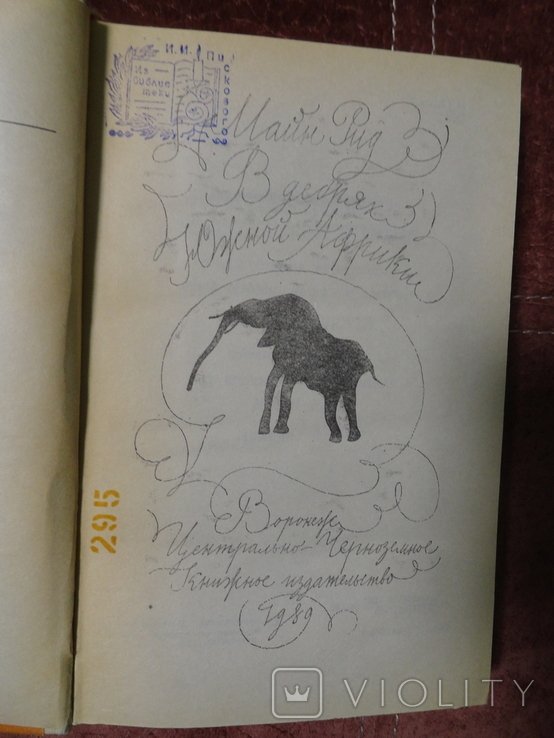 И.И. Писковского
Из
библио
теки
Майн Рид
В дебрях
Южной Африки
295
Воронеж
Центрально-Черноземное
Книжное издательство
1989
VIOLITY